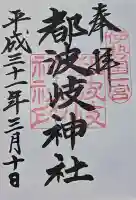 奉拝
都波岐神社
平成三十一年三月十日